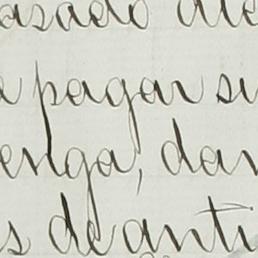 asado de
a pagar su
enga, dar
s de anti